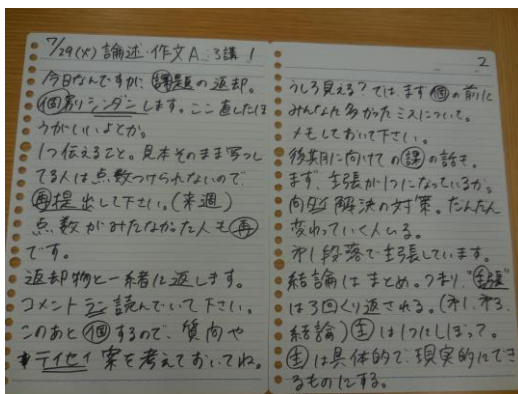 7/29(火)論述・作文A 3講 1
今日なんですが、課題の返却。
個別シンダンします。ここ直したほ
うがいいよとか。
1つ伝えること。見本そのまま写し
てる人は点数つけられないので、
再提出して下さい。(来週)
点数がみたなかった人も再
です。
返却物と一緒に返します。
コメントラン読んでいて下さい。
このあと個するので、質問や
テイセイ案を考えておいてね。
2
うしろ見える?では、まず個の前に
みんなた多かったミスについて。
メモしておいて下さい。
後期に向けての課の話を。
まず、主張が1つになっているか。
問題解決の対策。だんだん
変わっていく人いる。
第1段落で主張しています。
結論はまとめ。つまり、"主張"
は3回くり返される。(第1、第3、
結論)主は1つにしぼって。
主は具体的で、現実的にでき
るものにする。